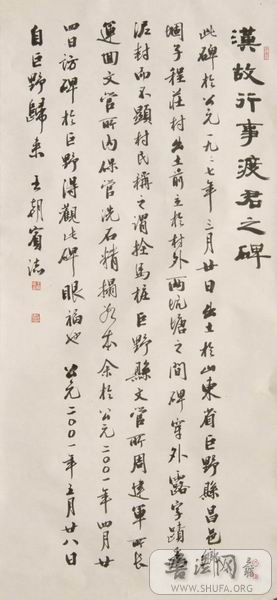 漢故行事渡君之碑
此碑於公元一九二七年三月廿日出土於山東省巨野縣昌邑鄉
堌子程莊村出土前立於村外兩坑塘之間碑穿外露字蹟
泥封而不顯村民稱之謂拴馬桩巨野縣文管所周建軍所長
運回文管所內保管洗石精搨為本余於公元二〇〇一年四月廿
四日訪碑於巨野得觀此碑眼福也 公元二〇〇一年五月廿八日
自巨野歸來 王朝賓誌
書法网
www.SHUFA.ORG